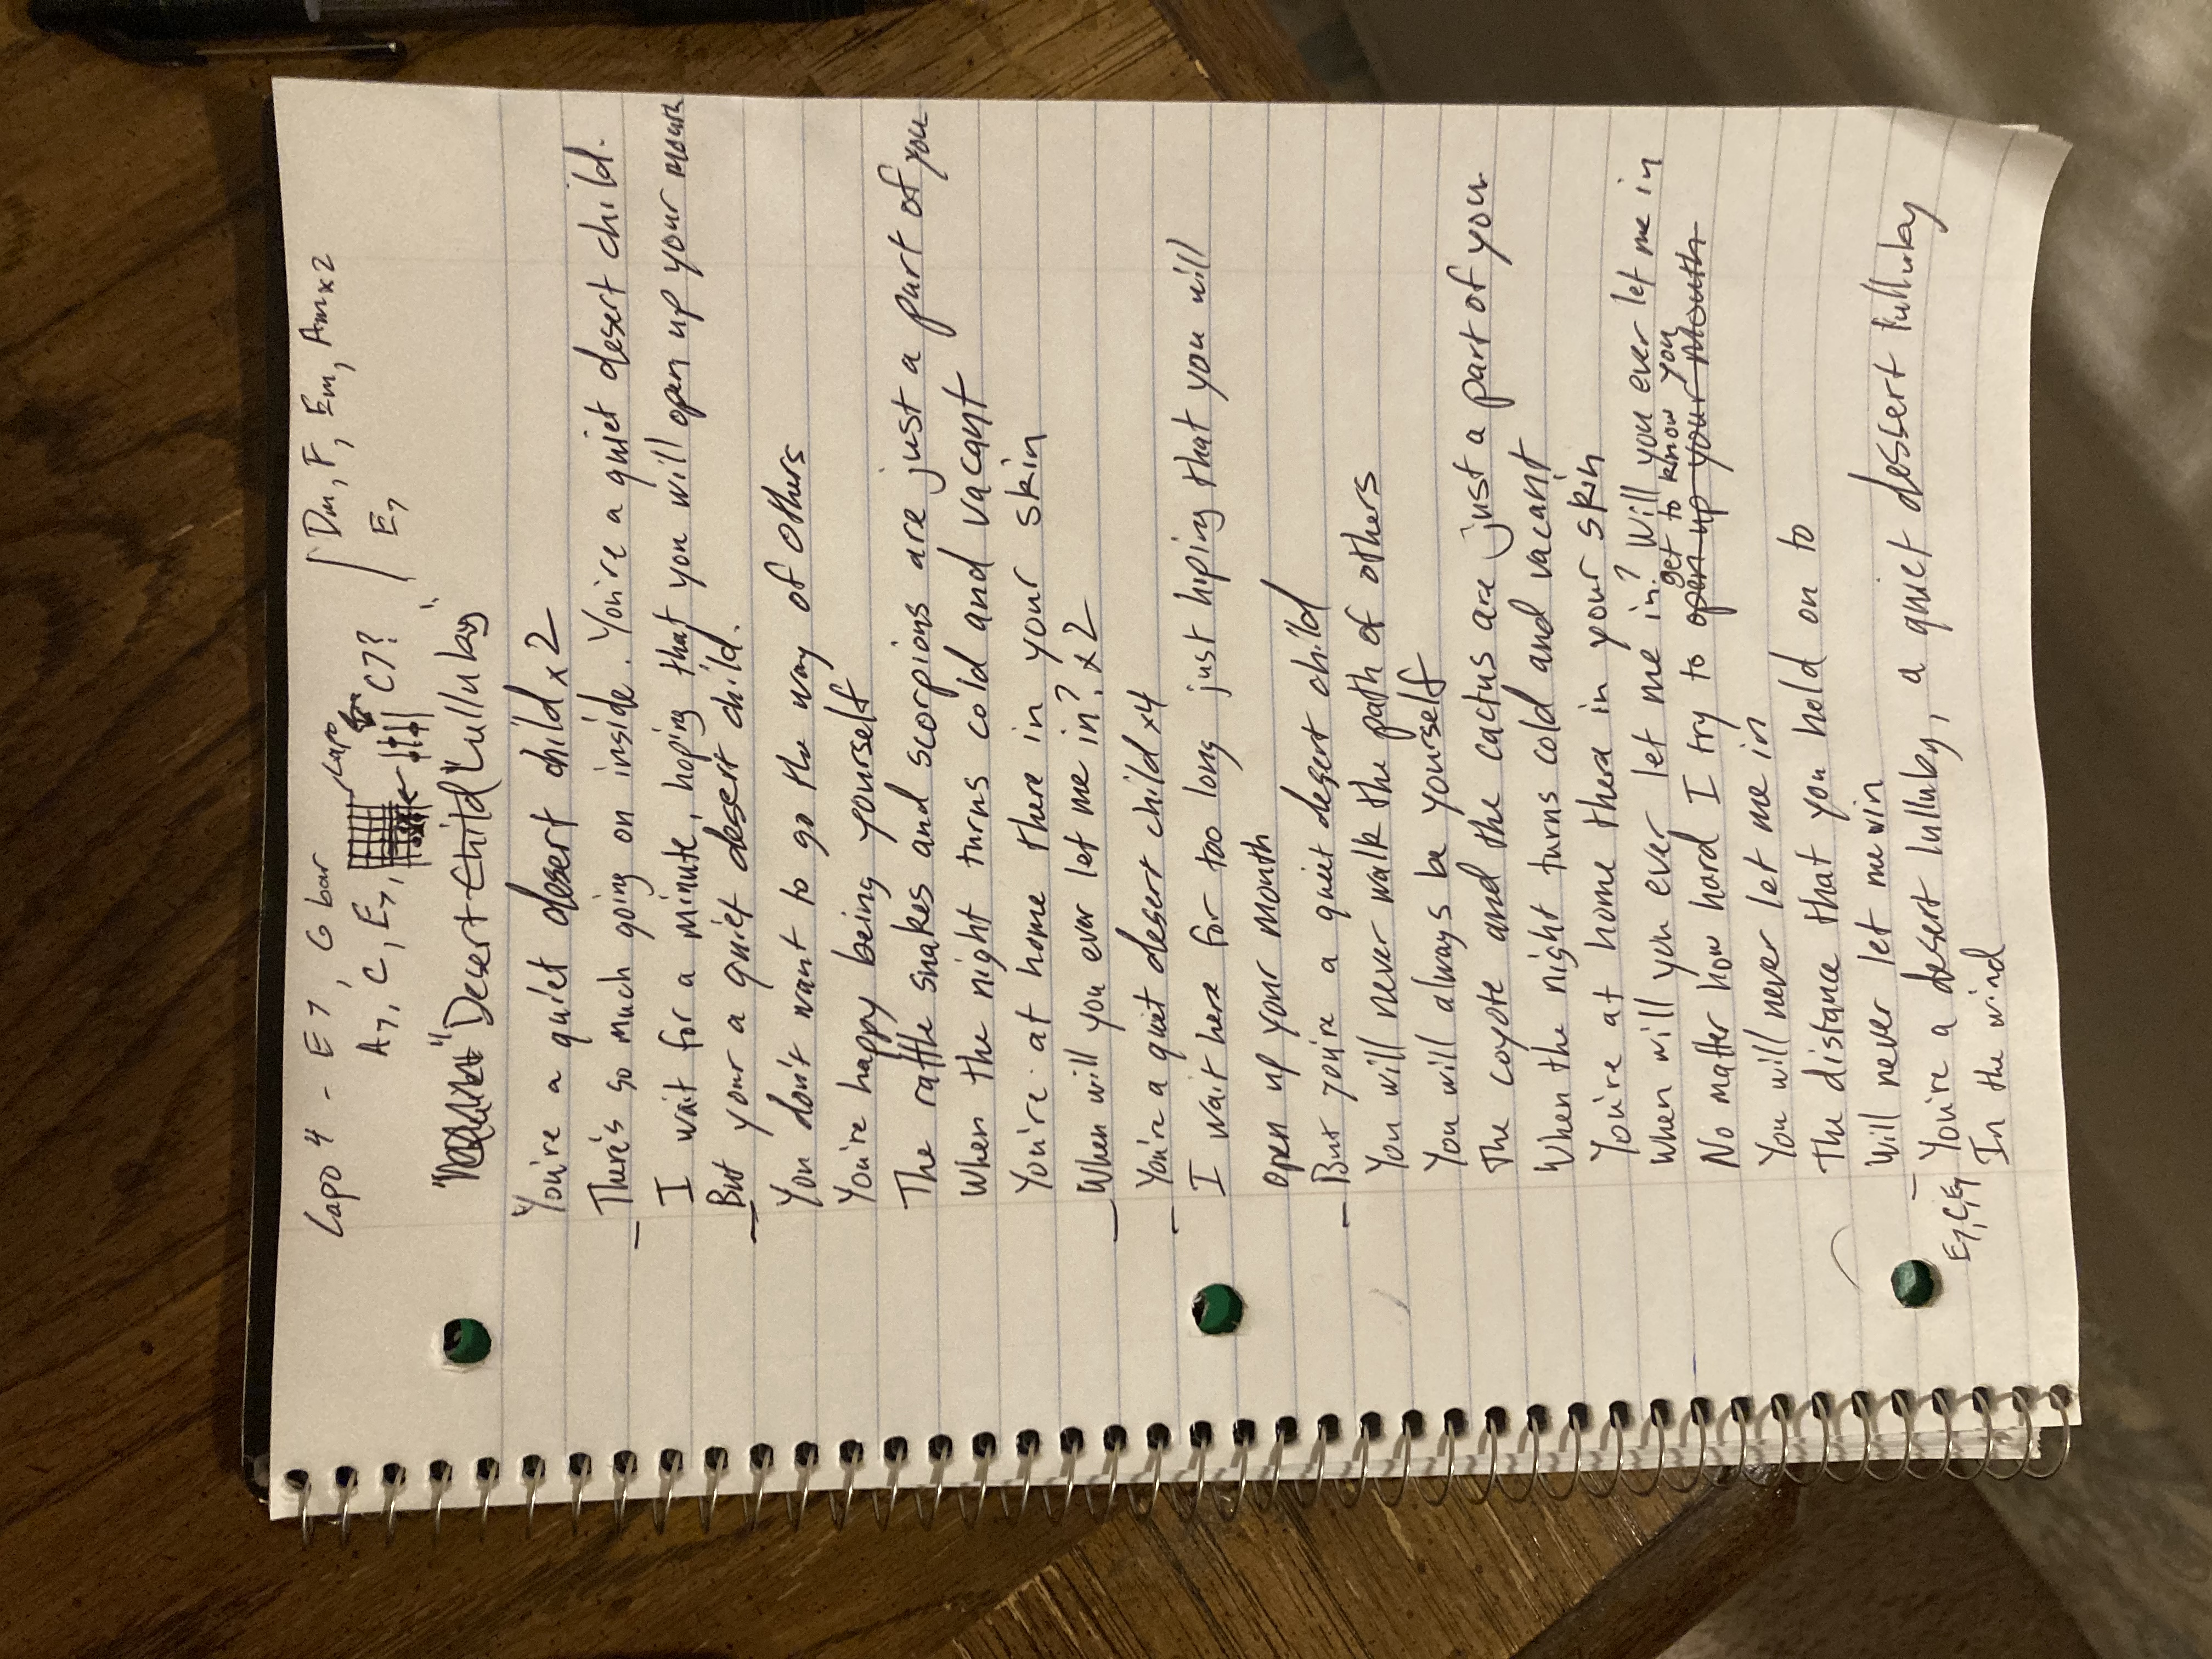 Capo 4 - E7, G bar
Capo
Dm, F, Em, Am x2
A7, C, E7, C7?
E7
"Desert Child" Lulluby"
You're a quiet desert child x2
There's so much going on inside. You're a quiet desert child.
I wait for a minute, hoping that you will open up your mouth
But your a quiet desert child.
You don't want to go the way of others
You're happy being yourself
The rattle snakes and scorpions are just a part of you
When the night turns cold and vacant
You're at home there in your skin
When will you ever let me in? x2
You're a quiet desert child x4
I wait here for too long just hoping that you will
open up your mouth
But you're a quiet desert child
You will never walk the path of others
You will always be yourself
The coyote and the cactus are just a part of you
When the night turns cold and vacant
You're at home there in your skin
When will you ever let me in? Will you ever let me in
get to know you
No matter how hard I try to open up your mouth
You will never let me in
The distance that you hold on to
Will never let me win
You're a desert lulluby, a quiet dessert lulluby
E7, C, E7
In the wind